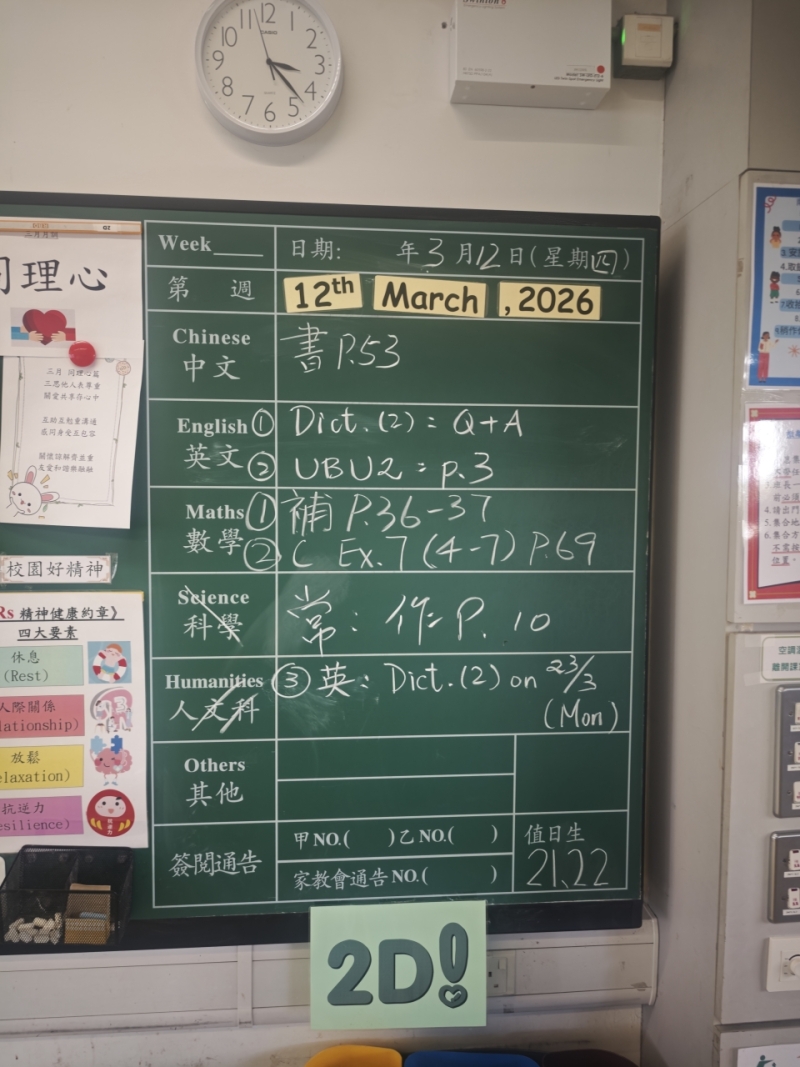 12
11
10
9
8
7
6
5
4
3
2
1
CASIO
Week____ 日期: 年3月12日(星期四)
第 週 12th March , 2026
Chinese
中文
書 P.53
English ① Dict. (2) : Q+A
英文 ② UBU2 : p.3
Maths ① 補 P.36-37
數學 ② C Ex.7 (4-7) P.69
Science
科學
常: 作 P. 10
Humanities ③ 英: Dict.(2) on 23/3
人文科 (Mon)
Others
其他
簽閱通告
甲NO.( )乙NO.( )
家教會通告NO.( )
值日生
21,22
2D!
同理心
三月 同理心篇
三思他人表尊重
關愛共享存心中
校園好精神
Rs 精神健康約章》
四大要素
休息
(Rest)
人際關係
lationship)
放鬆
elaxation)
抗逆力
esilience)